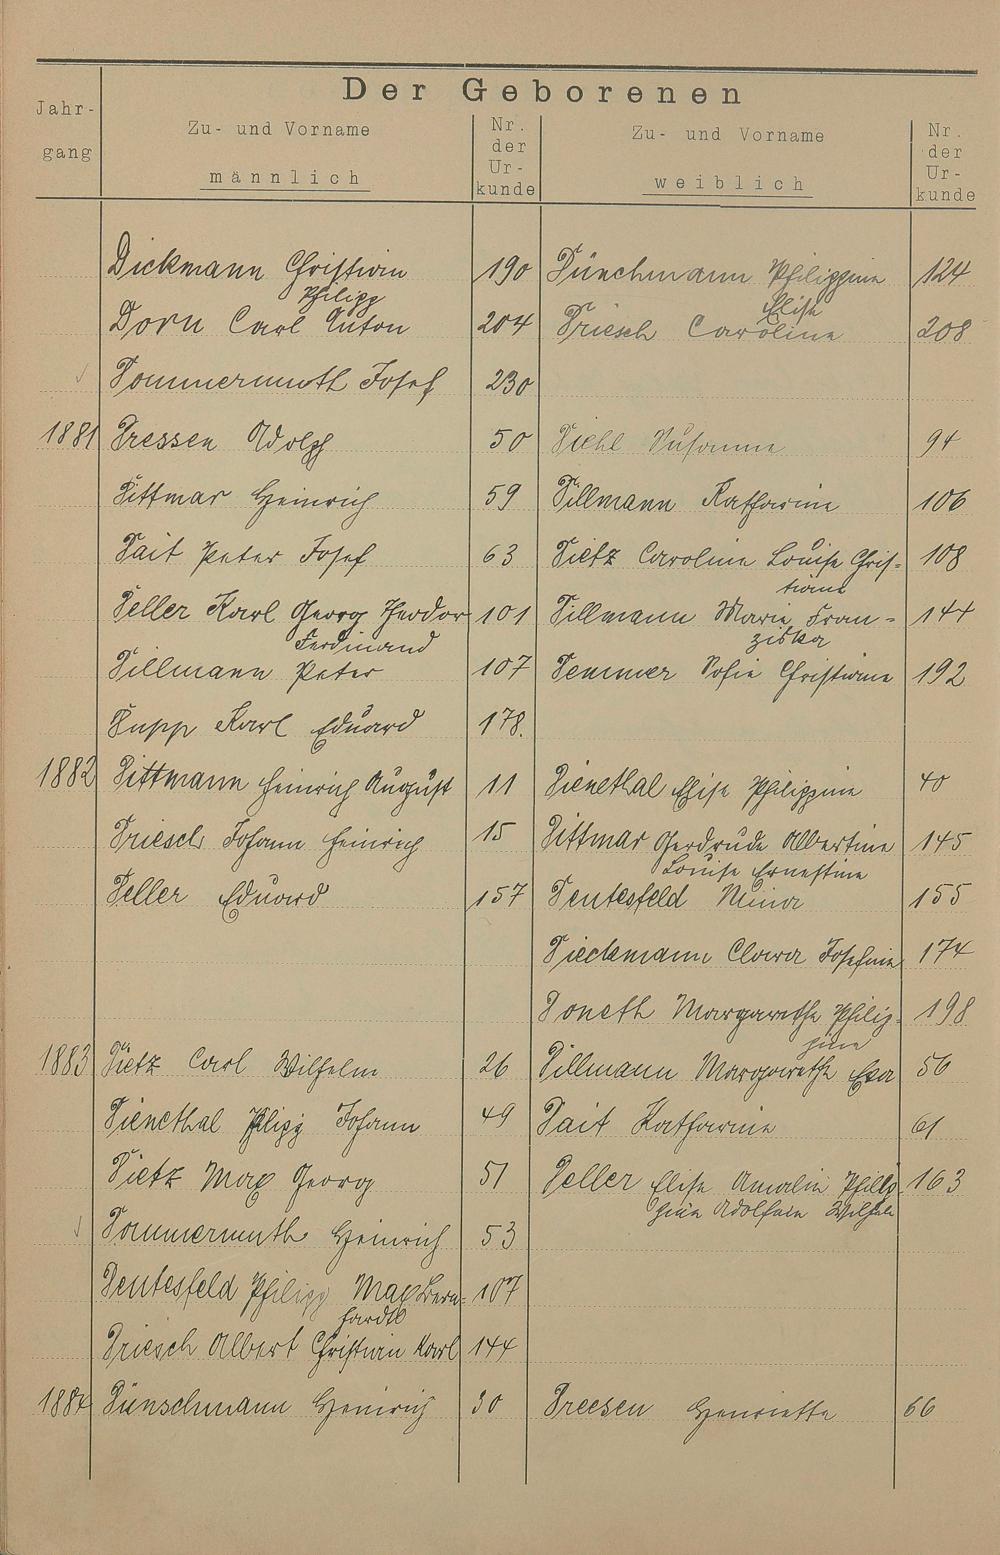 Der Geborenen
Jahr-
gang
Zu- und Vorname
männlich
Nr.
der
Ur-
kunde
Zu- und Vorname
weiblich
Nr.
der
Ur-
kunde
Dickmann Christian 190 Dünchmann Philippine 124
Philipp Elise
Dorn Carl Anton 204 Driesch Caroline 208
Dommermuth Josef 230
1881 Dressen Adolph 50 Diehl Susanna 94
Dittmar Heinrich 59 Dillmann Katharina 106
Dait Peter Josef 63 Dietz Caroline Louise Chris- 108
tiane
Deller Karl Georg Theodor 101 Dillmann Maria Fran- 144
Ferdinand ziska
Dillmann Peter 107 Demmer Sofie Christiane 192
Dupp Karl Eduard 178.
1882 Dittmann Heinrich August 11 Dienethal Elise Philippine 40
Driesch Johann Heinrich 15 Dittmar Gerdrude Albertine 145
Louise Ernestine
Deller Eduard 157 Dentesfeld Minna 155
Dieckmann Clara Josefine 174
Doneth Margarethe Philip- 198
pine
1883 Dietz Carl Wilhelm 26 Dillmann Margarethe Eva 56
Dienethal Philipp Johann 49 Dait Katharina 61
Dietz Max Georg 51 Deller Elise Amalie Philip- 163
pine Adolfine
Dommermuth Heinrich 53
Dentesfeld Philipp Max Bern- 107
hardt
Driesch Albert Christian Karl 144
1884 Dünschmann Heinrich 30 Dreesen Henriette 66